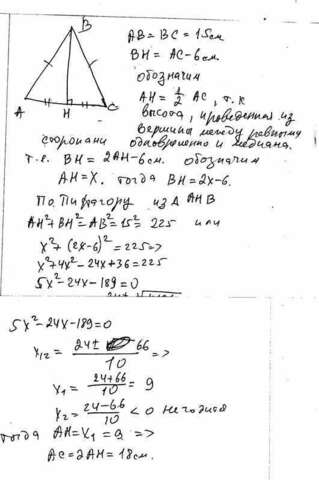 B
A
H
C
AB = BC = 15см
BH = AC-6см
обозначим
AH = 1/2 AC, т.к
высота, проведенная из
вершины между равными
сторонами одновременно и медиана.
т.е. BH = 2AH-6см. обозначим
AH=X. тогда BH=2x-6.
По Пифагору из Δ AHB
AH²+BH²=AB²=15²=225 или
x²+(2x-6)²=225=>
x²+4x²-24x+36=225
5x²-24x-189=0
5x²-24x-189=0
x₁₂= (24± 66)/10 =>
x₁= (24+66)/10 = 9
x₂= (24-66)/10 <0 не годится
тогда AH=x₁=9 =>
AC=2AH=18см.